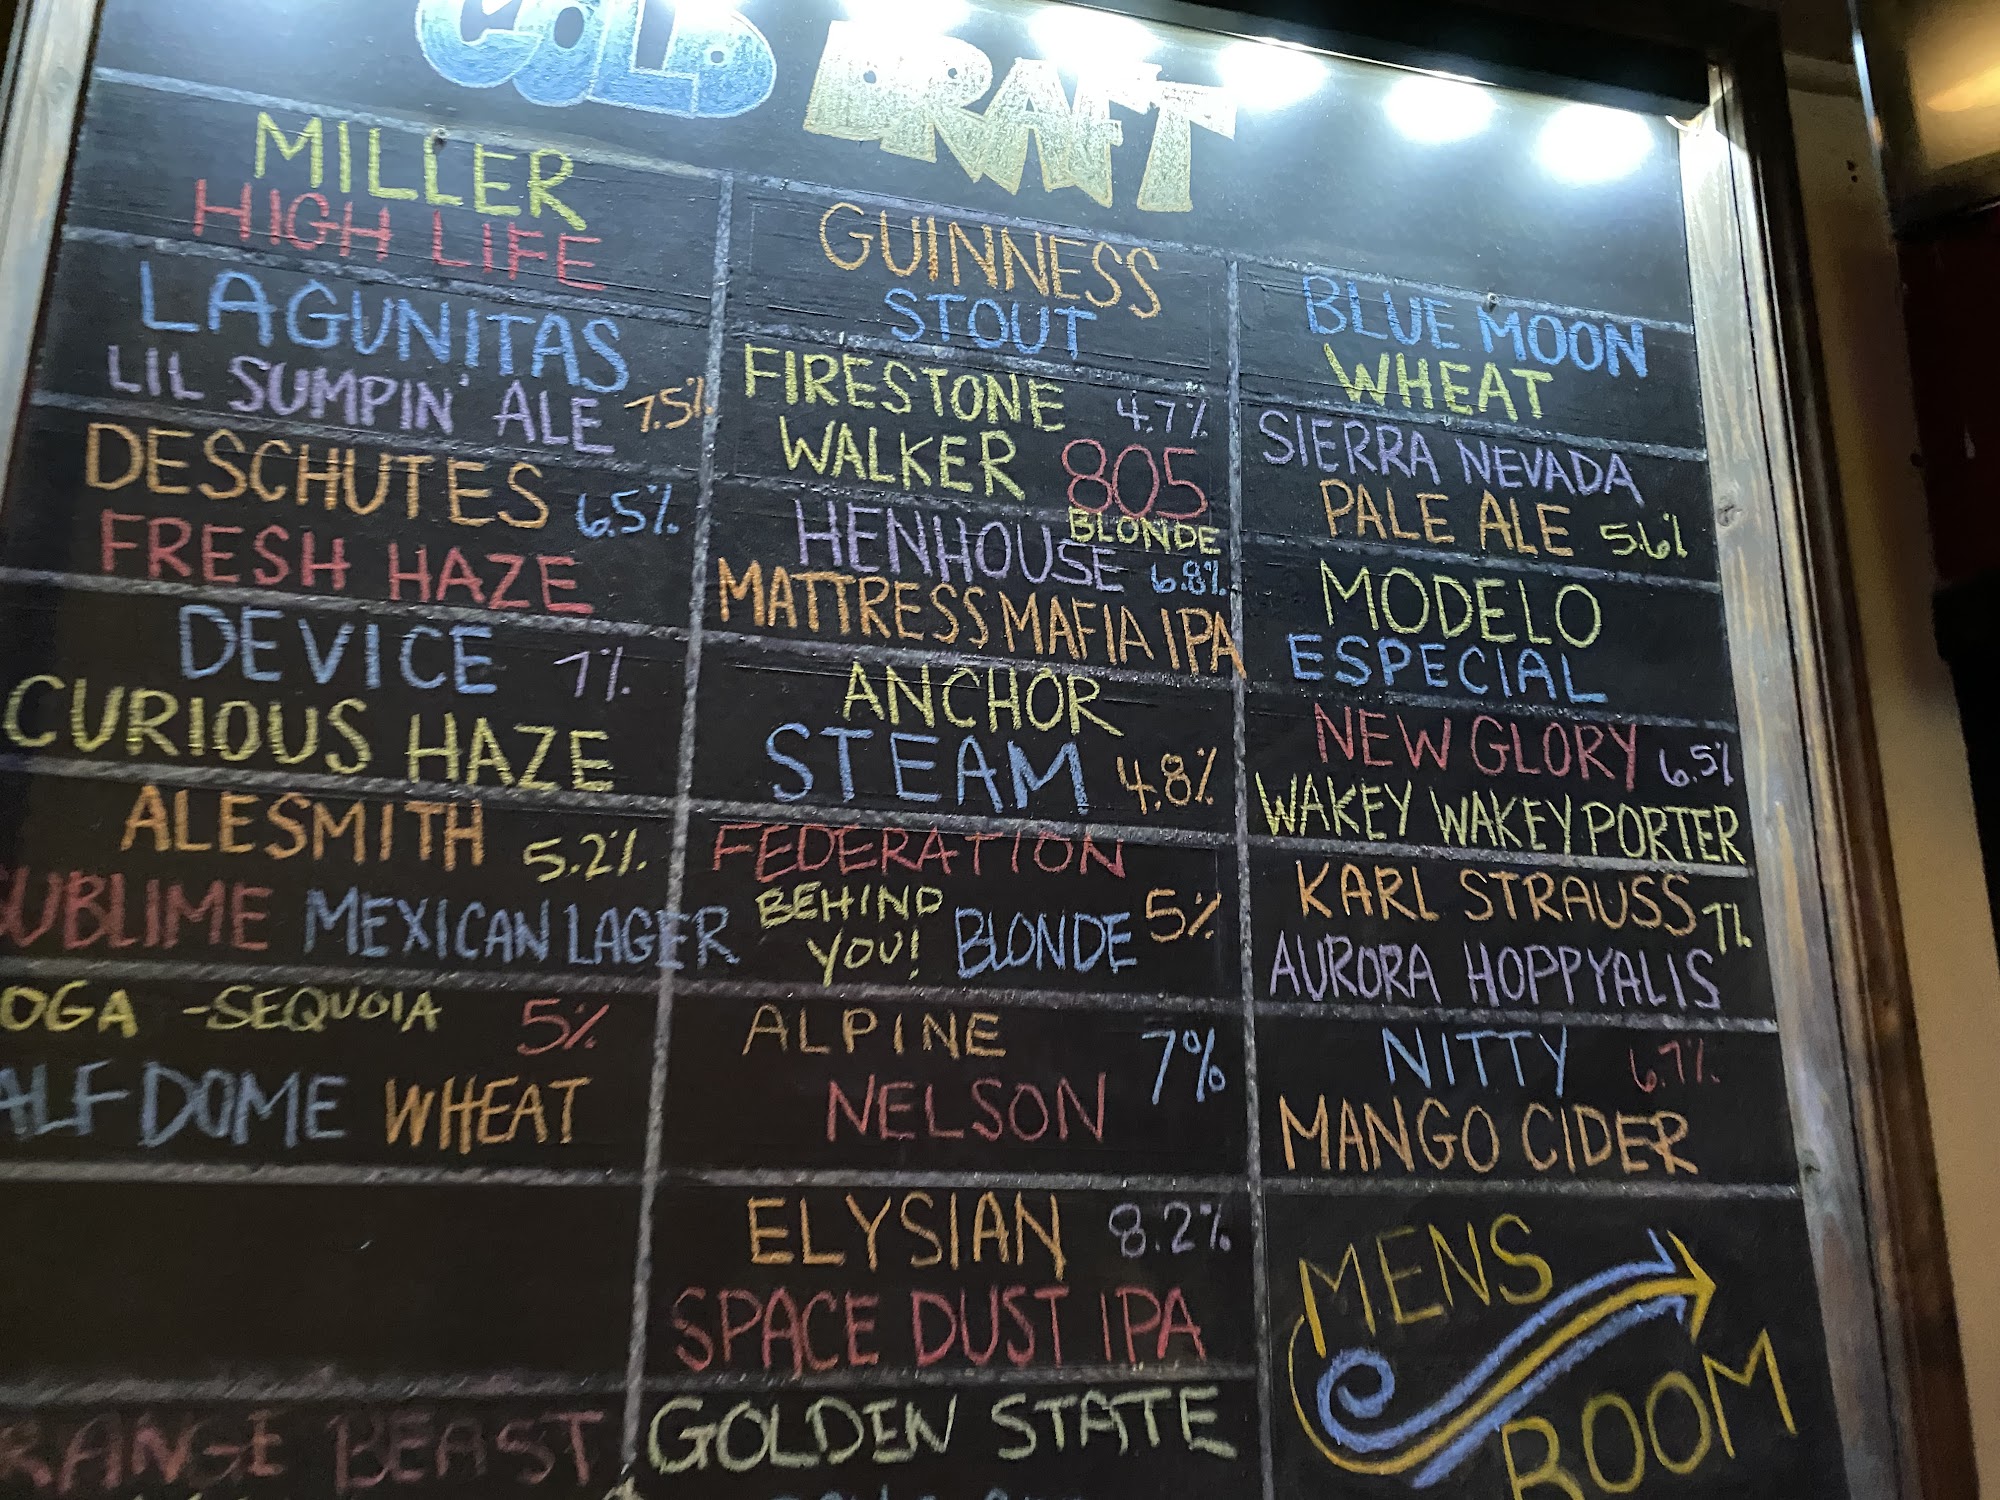 COLD DRAFT
MILLER
HIGH LIFE
LAGUNITAS
LIL SUMPIN' ALE 7.5%
DESCHUTES 6.5%
FRESH HAZE
DEVICE 7%
CURIOUS HAZE
ALESMITH 5.2%
SUBLIME MEXICAN LAGER
OGA -SEQUOIA 5%
ALF DOME WHEAT
RANGE BEAST
GUINNESS
STOUT
FIRESTONE 4.7%
WALKER 805
BLONDE
HENHOUSE 6.8%
MATTRESS MAFIA IPA
ANCHOR
STEAM 4.8%
FEDERATION
BEHIND
YOU! BLONDE 5%
ALPINE 7%
NELSON
ELYSIAN 8.2%
SPACE DUST IPA
GOLDEN STATE
BLUE MOON
WHEAT
SIERRA NEVADA
PALE ALE 5.6%
MODELO
ESPECIAL
NEW GLORY 6.5%
WAKEY WAKEY PORTER
KARL STRAUSS 7%
AURORA HOPPYALIS
NITTY 6.7%
MANGO CIDER
MENS
ROOM